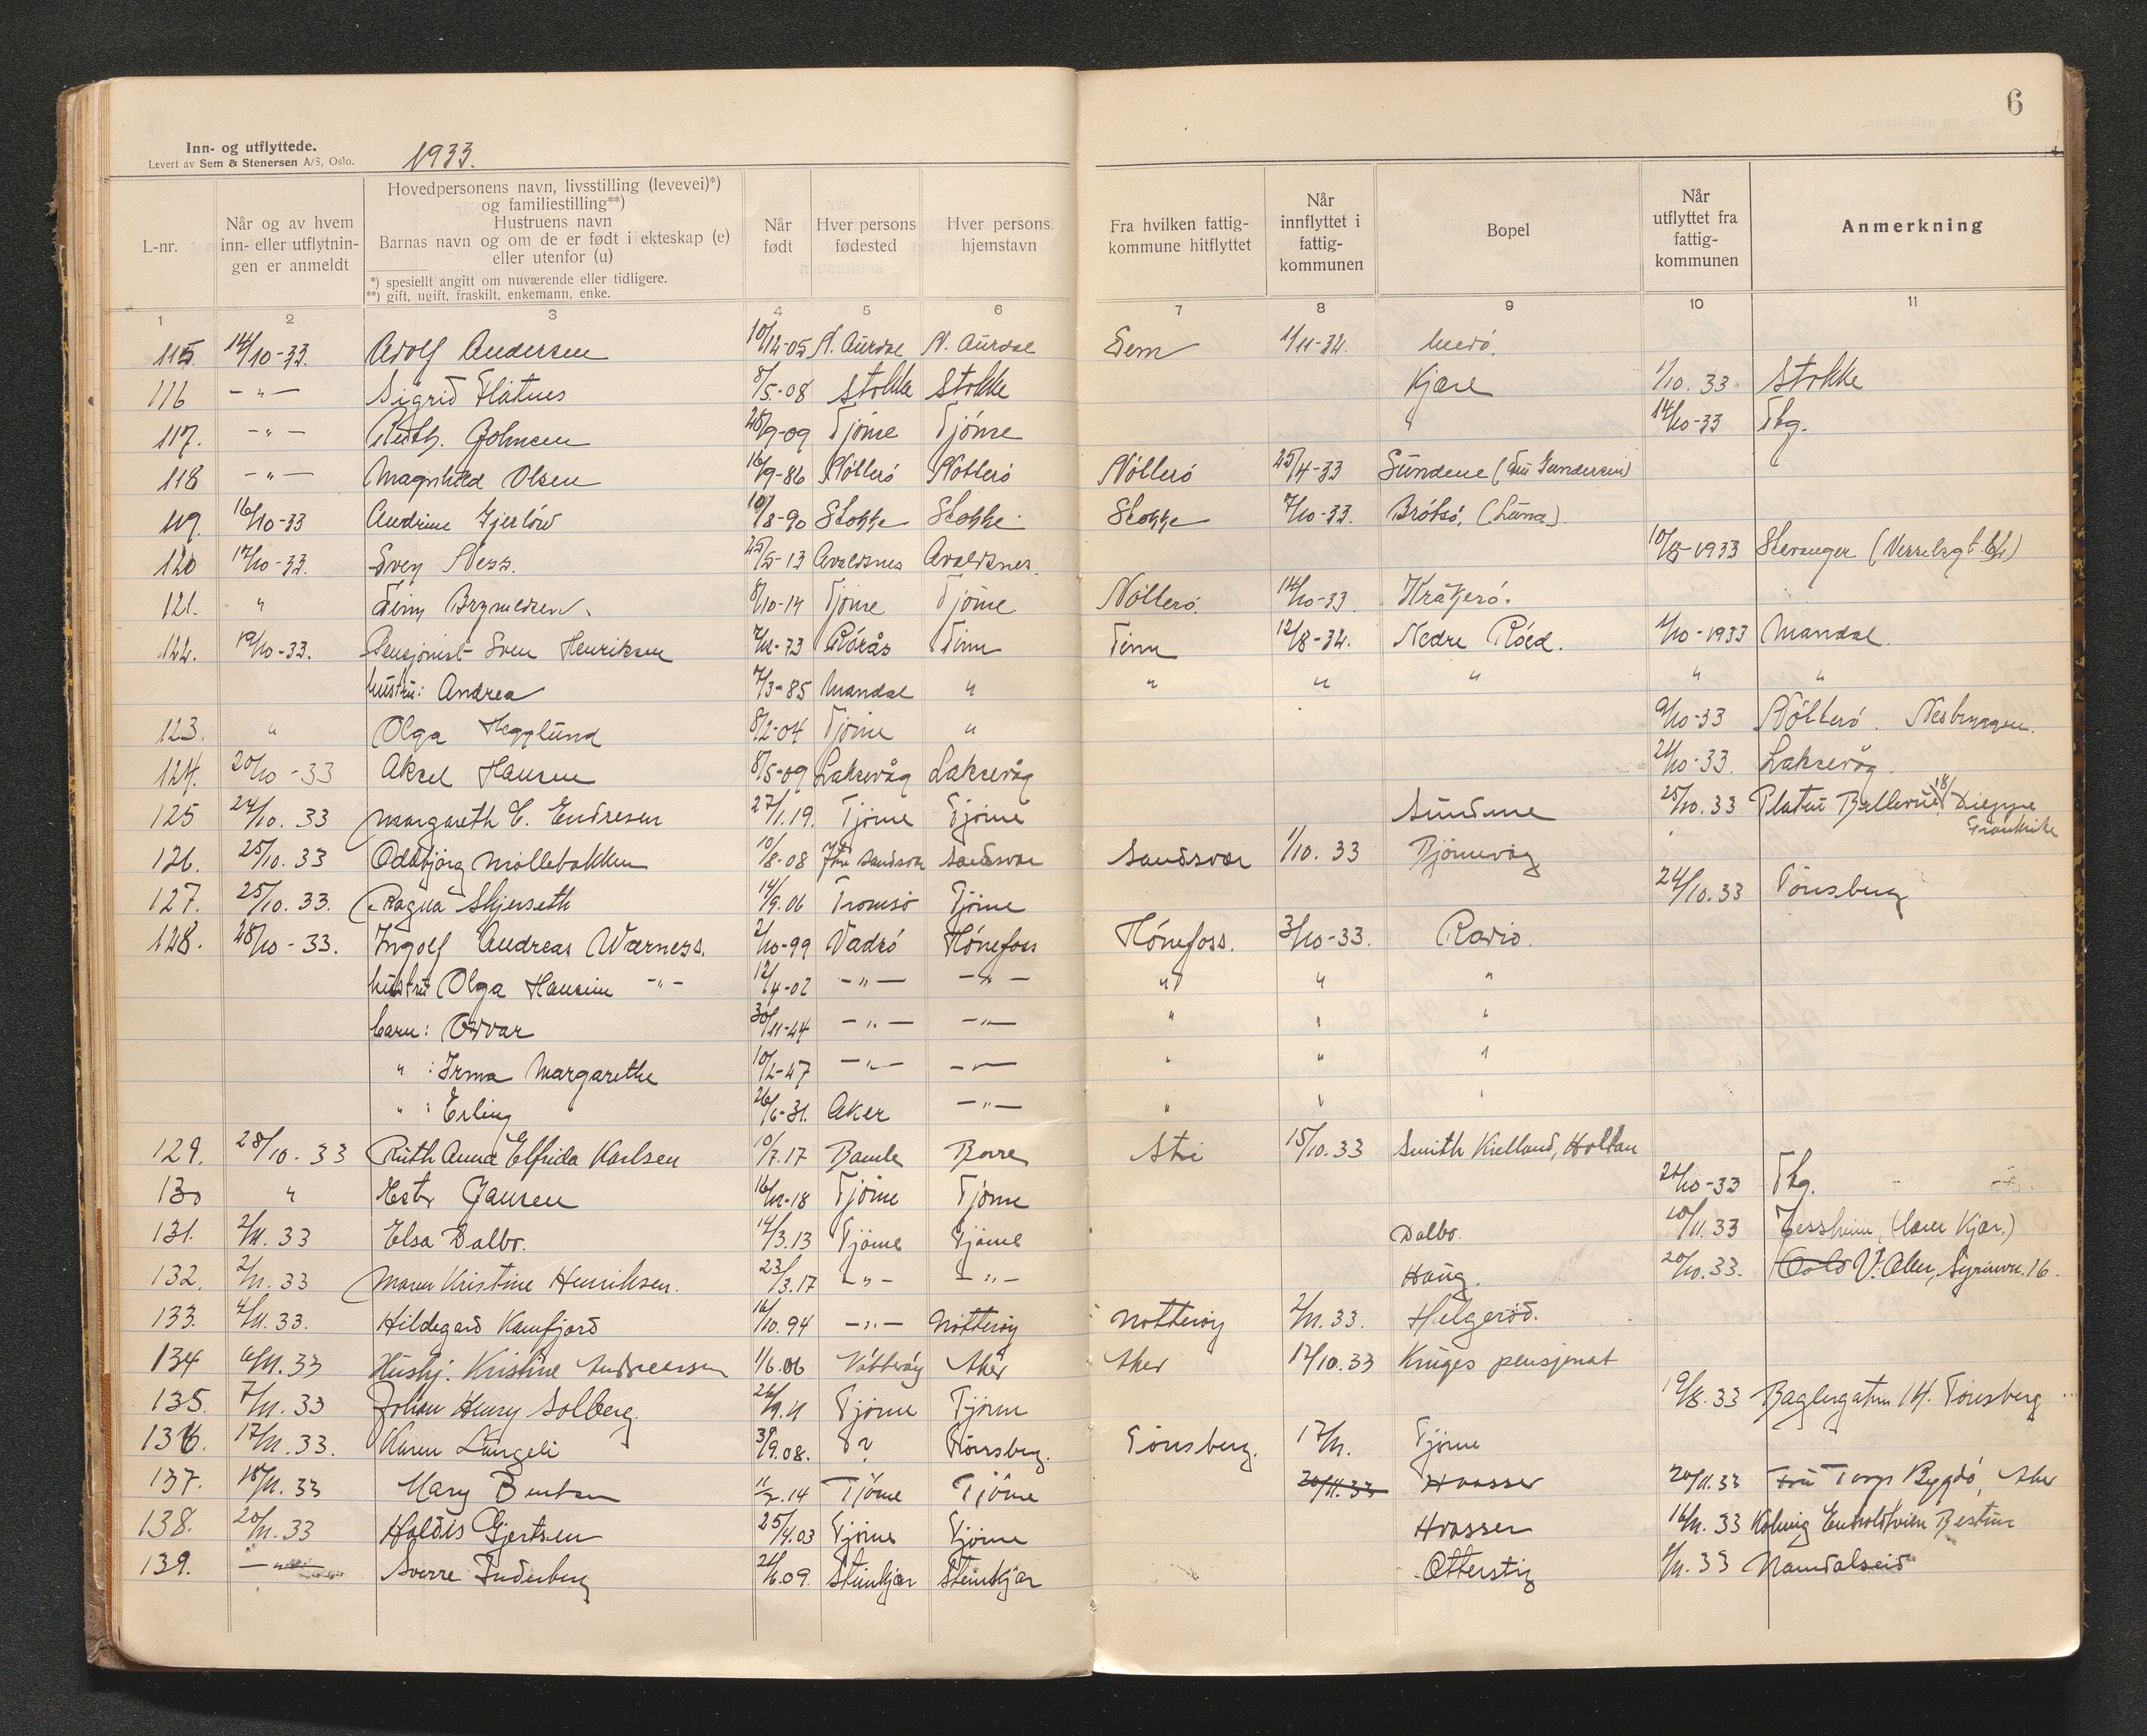 6
Inn- og utflyttede.
Levert av Sem & Stenersen A/S, Oslo.
1933.
L-nr.
Når og av hvem inn- eller utflytnin- gen er anmeldt
Hovedpersonens navn, livsstilling (levevei)*)
og familiestilling**)
Hustruens navn
Barnas navn og om de er født i ekteskap (e)
eller utenfor (u)
*) spesiellt angitt om nuværende eller tidligere.
**) gift, ugift, fraskilt, enkemann, enke.
Når født
Hver persons fødested
Hver persons hjemstavn
Fra hvilken fattig- kommune hitflyttet
Når innflyttet i fattig- kommunen
Bopel
Når utflyttet fra fattig- kommunen
Anmerkning
1 2 3 4 5 6 7 8 9 10 11
115. 14/10-33. Adolf Andersen 10/12-05 N. Aurdal N. Aurdal Sem 1/11-32.
116 -"- Sigrid Flåtnes 8/5-08 Stokke Stokke Kjære 1/10. 33 Stokke
117. -"- Ruth Johnsen 28/9-09 Tjøme Tjøme 14/10-33 Tbg.
118 -"- Magnhild Olsen 16/9-86 Nötterö Nötterö Nötterö 25/4-33 Sundene (Fru Gundersen)
119. 16/10-33 Andrine Gjerlöw 10/8-90 Stokke Stokke Stokke 7/10-33. Brötsö,
120 17/10-33. Svey Ness. 25/5-13 Avaldsnes Avaldsnes. 10/8-1933 Stavanger
121. " Brynildsen. 8/10-14 Tjöme Tjöme Nötterö. 14/10-33 Kråkerö.
122. 19/10-33. Pensjonist Sven Henriksen 73 Rörås Tinn Tinn 12/8-32. Nedre Röed. 1/10-1933 Mandal.
hustru: Andrea 7/3-85 Mandal " " " " " "
123. " Olga Hegglund 8/2-04 Tjöme " 9/10-33 Nötterö. Nesbryggen.
124. 20/10-33 Aksel Hansen 8/5-09 Laksevåg Laksevåg 21/10-33. Laksevåg.
125 24/10. 33 Margareth E. Endresen 27/1.19. Tjöme Tjöme Sundene 25/10. 33 Dieppe
Frankrike
126. 25/10. 33 Oddbjörg Möllebakken 10/8-08 Sandsvær Sandsvær Sandsvær 1/10. 33 Bjørnevåg
127. 25/10. 33. Ragna Skjerseth 14/9.06 Tromsö Tjöme 24/10.33 Tönsberg
128. 28/10-33. Ingolf Andreas Wærness. 2/10-99 Vadsö Hönefoss Hönefoss. 3/10-33. Radio.
hustru Olga Hansine -"- 12/4-02 -"- -"- " " "
barn: Odvar 30/11-24 -"- -"- " " "
" : Irma Margarethe 10/2-27 -"- -"- " " "
" : Erling 26/6-31. Aker -"- " " "
129. 28/10. 33 Ruth Anna Elfrida Karlsen 10/7.17 Bamle Borre 15/10.33 Smith Kielland, Holtan
130 " Ester Jansen 16/12-18 Tjöme Tjöme 21/10-33 Tbg.
131. 2/11. 33 Elsa Dalbo. 14/3.13 Tjöme Tjöme Dalbo. 10/11.33 Jessheim,
132. 2/11. 33 Maren Kristine Henriksen. 23/3.17 -"- -"- Haug. 20/10.33. Oslo V. Aker, Syrinvn. 16.
133. 4/11. 33. Hildegard Kamfjord 16/10.94 -"- Nötteröy Nötteröy 2/11. 33. Helgeröd.
134 6/11. 33 Hushj. Kristine Andreassen 1/6.06 Nötteröy Aker Aker 12/10.33 Krüges pensjonat
135. 7/11. 33 Johan Henry Solberg. 26/9.11 Tjöme Tjöme 19/8.33 Baglergaten 14. Tönsberg
136. 17/11. 33. Karen Langeli 3/9.08. ? Tönsberg. Tönsberg. 17/11. Tjöme
137. 18/11. 33 Mary Bentsen 14 Tjöme Tjöme 20/11.33 Hvasser 20/11.33 Bygdö, Aker
138. 20/11. 33 Haldis Gjertsen 25/4.03 Tjöme Tjöme Hvasser 16/11. 33
139. -"- Sverre Inderberg 09. Steinkjer Steinkjer Otterstig 33 Namdalseid